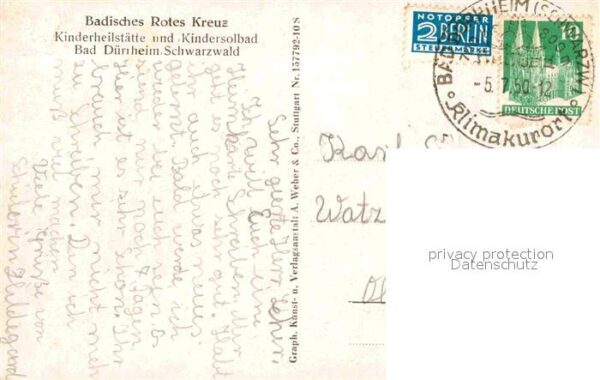 Badisches Rotes Kreuz
Kinderheilstätte und Kindersolbad
Bad Dürrheim/Schwarzwald
Sehr geehrte Herr Lehrer.
Ich will Euch eine
Heimkarte schreiben. Mir
geht es noch sehr gut. Habt
ihr auch etwas neues
gelernt. Bald werde ich
wieder bei euch sein. Es
sind nur noch 7 Tagen
Hier ist es sehr schön. Ihr
brauch mir nicht mehr
zu schreiben. Den ich
muß viel machen
Viele Grüße von
Schülerin Hildegard
Graph. Kunst- u. Verlagsanstalt: A. Weber & Co., Stuttgart Nr. 157792-10 S
NOTOPFER
2 BERLIN
STEUERMARKE
BAD DÜRRHEIM (SCHWARZW.)
-5.7.50.-12
Klimakurort
10
DEUTSCHE POST
Karl
Watz
privacy protection
Datenschutz